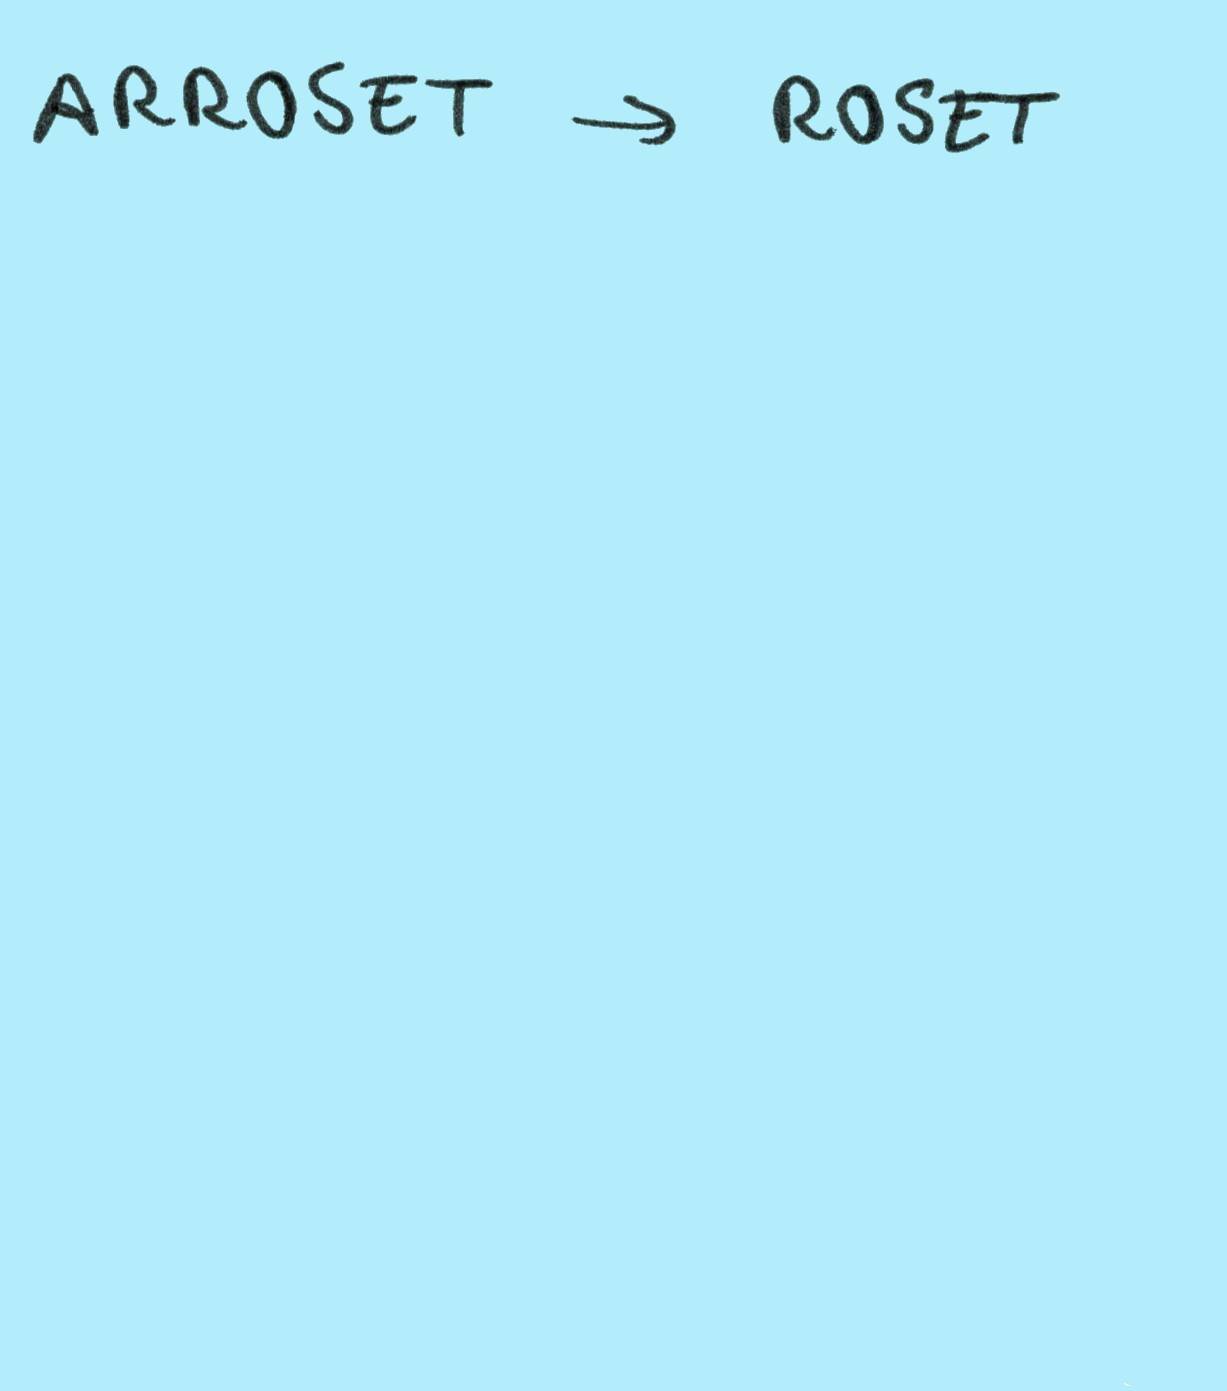 ARROSET → ROSET